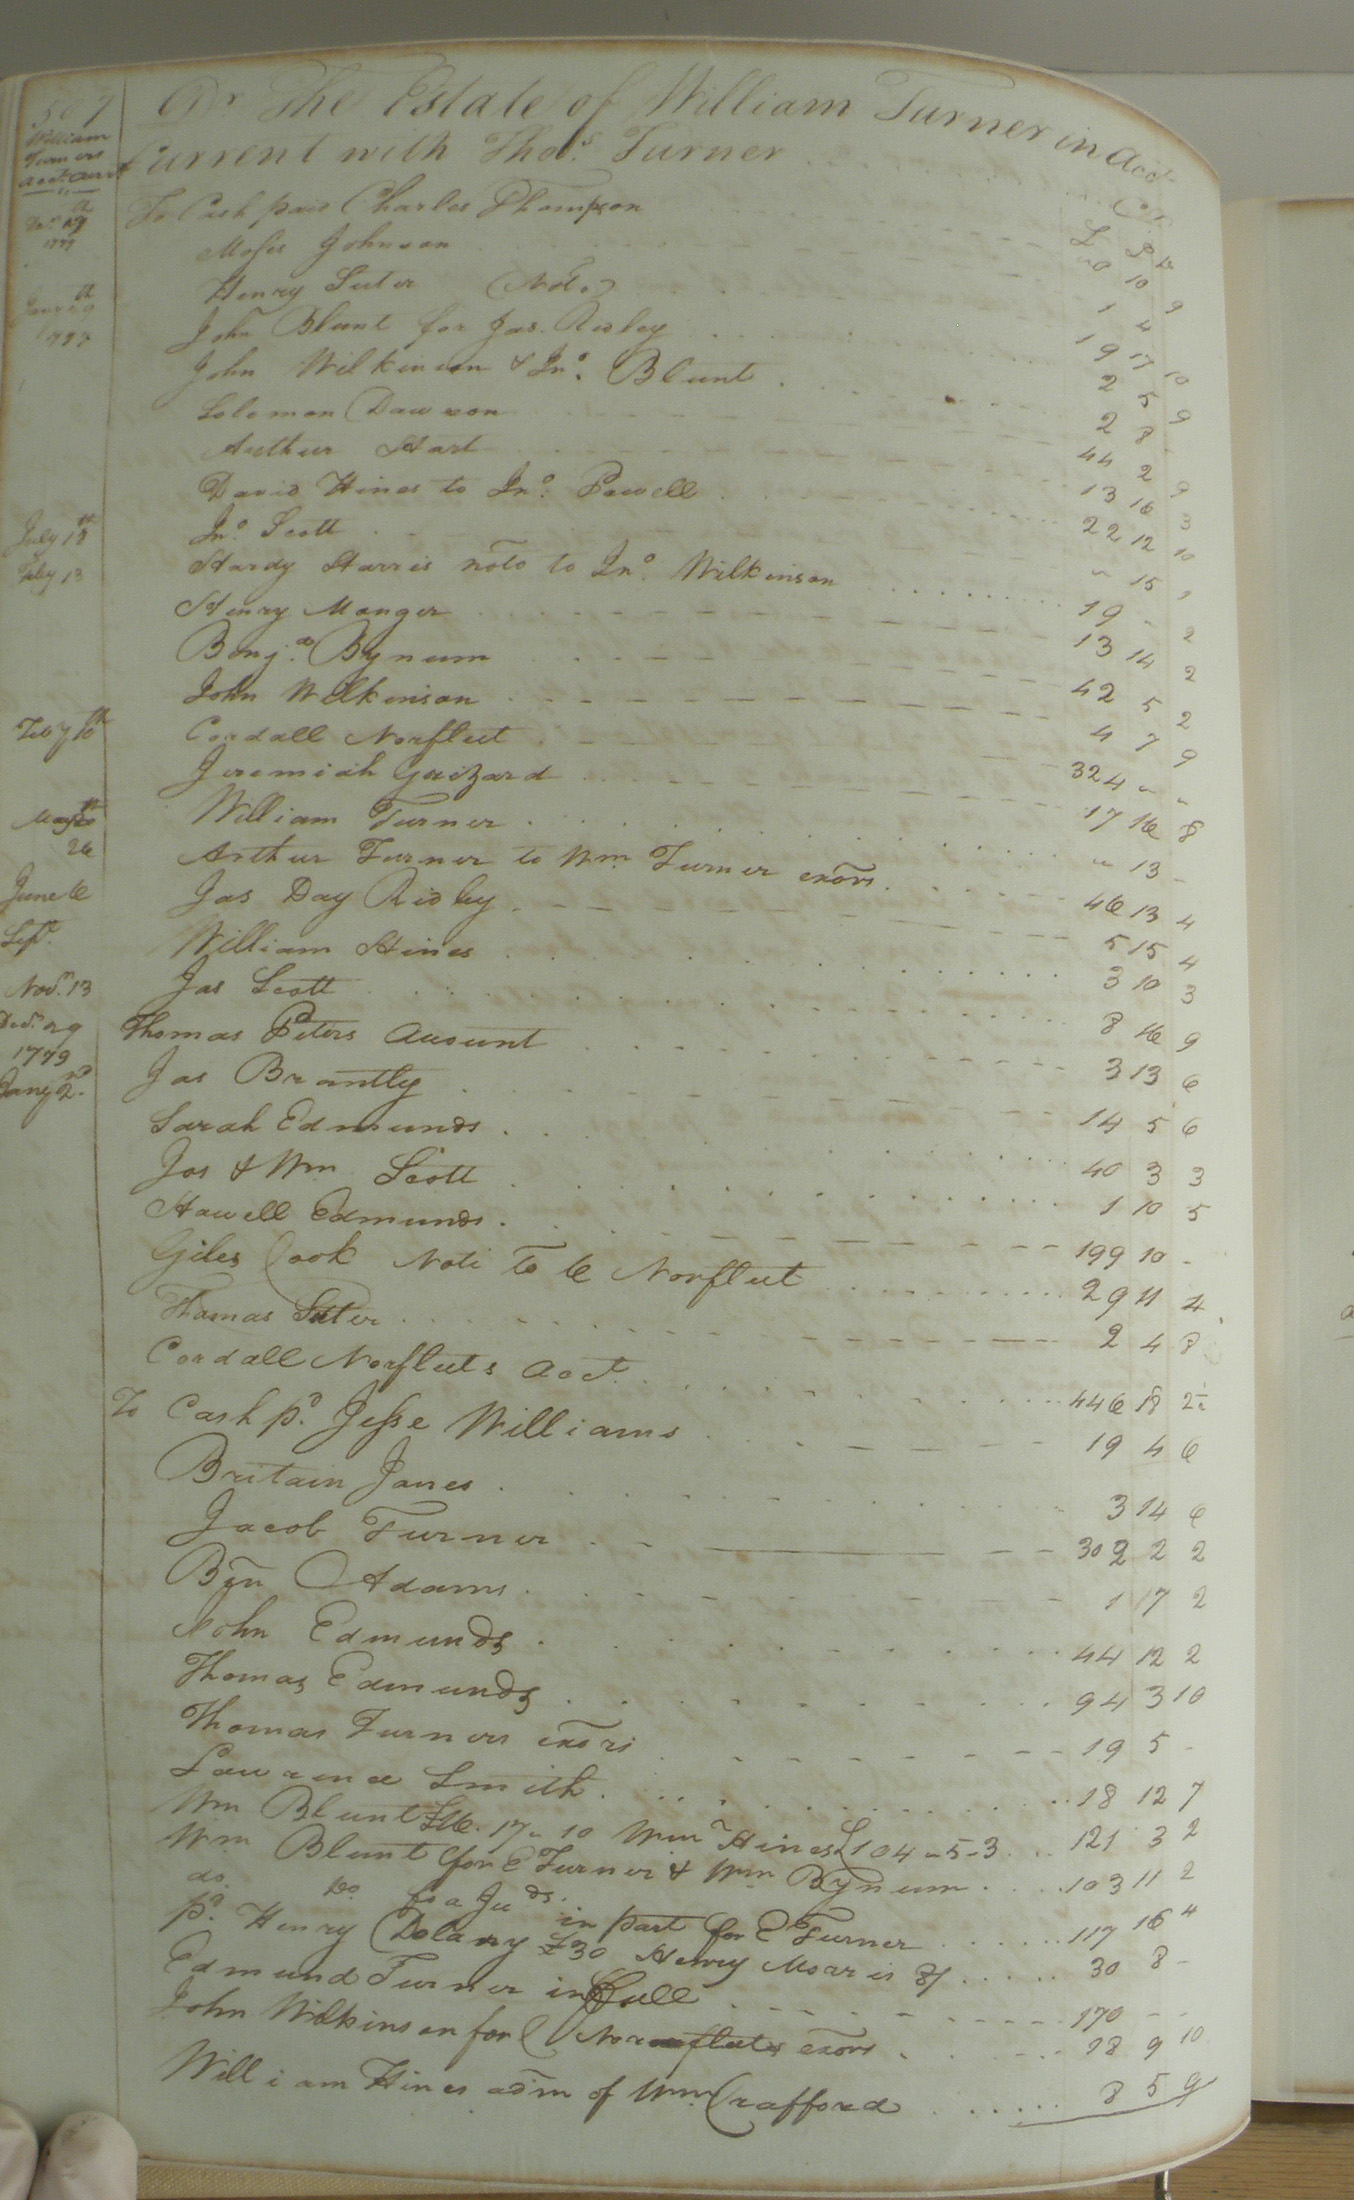 507 Dr The Estate of William Turner in Acct
William Turners Acct Curt
Current with Thos. Turner
Cr.
£ S D
Decr 29th 1777 To Cash paid Charles Thompson " 10 9
Moses Johnson 1 4
Henry Suter (Note) 19 17 10
John Blunt for Jas. Ridley 2 5 9
John Wilkinson & Jno. Blunt 2 8
Solomon Dawson 44 2 9
Arthur Hart 13 16 3
David Hines to Jno. Powell 22 12 10
July 18th Jno. Scott " 15
Feby 13 Hardy Harris note to Jno. Wilkinson 19 - 2
Henry Manger 13 14 2
Benja. Bynum 42 5 2
John Wilkinson 4 7 9
Feby 10th Cordall Norfleet 324 " "
Jeremiah Grizard 17 16 8
May 20th William Turner " 13 -
26 Arthur Turner to Wm Turner exors. 46 13 4
June 6 Jas Day Ridley 5 15 4
Sept. William Hines 3 10 3
Nov. 13 Jas Scott 8 16 9
Decr. 29 Thomas Peters Account 3 13 6
1779
Jany 2nd. Jas Brantly 14 5 6
Sarah Edmunds 40 3 3
Jas & Wm Scott 1 10 5
Howell Edmunds 199 10 -
Giles Cook Note to C Norfleet 29 11 4
Thomas Suter 2 4 8
Cordall Norfleets Acct. 446 18 2½
To Cash pd. Jesse Williams 19 4 6
Britain Jones 3 14 6
Jacob Turner 302 2 2
Byn Adams 1 17 2
John Edmunds 44 12 2
Thomas Edmunds 94 3 10
Thomas Turners exors 19 5 -
Lawrence Smith 18 12 7
Wm Blunt £16. 17 " 10 Wm Hines £104 - 5 - 3 121 3 2
Wm Blunt for E Turner & Wm Bynum 103 11 2
do. Do for a Juds. in part for E Turner 117 16 4
pd. Henry Delany £30 Henry Moaris 8/ 30 8 -
Edmund Turner in full 170 - -
John Wilkinson for C Norfleets exors 28 9 10
William Hines adm of Wm. Crafford 8 5 9